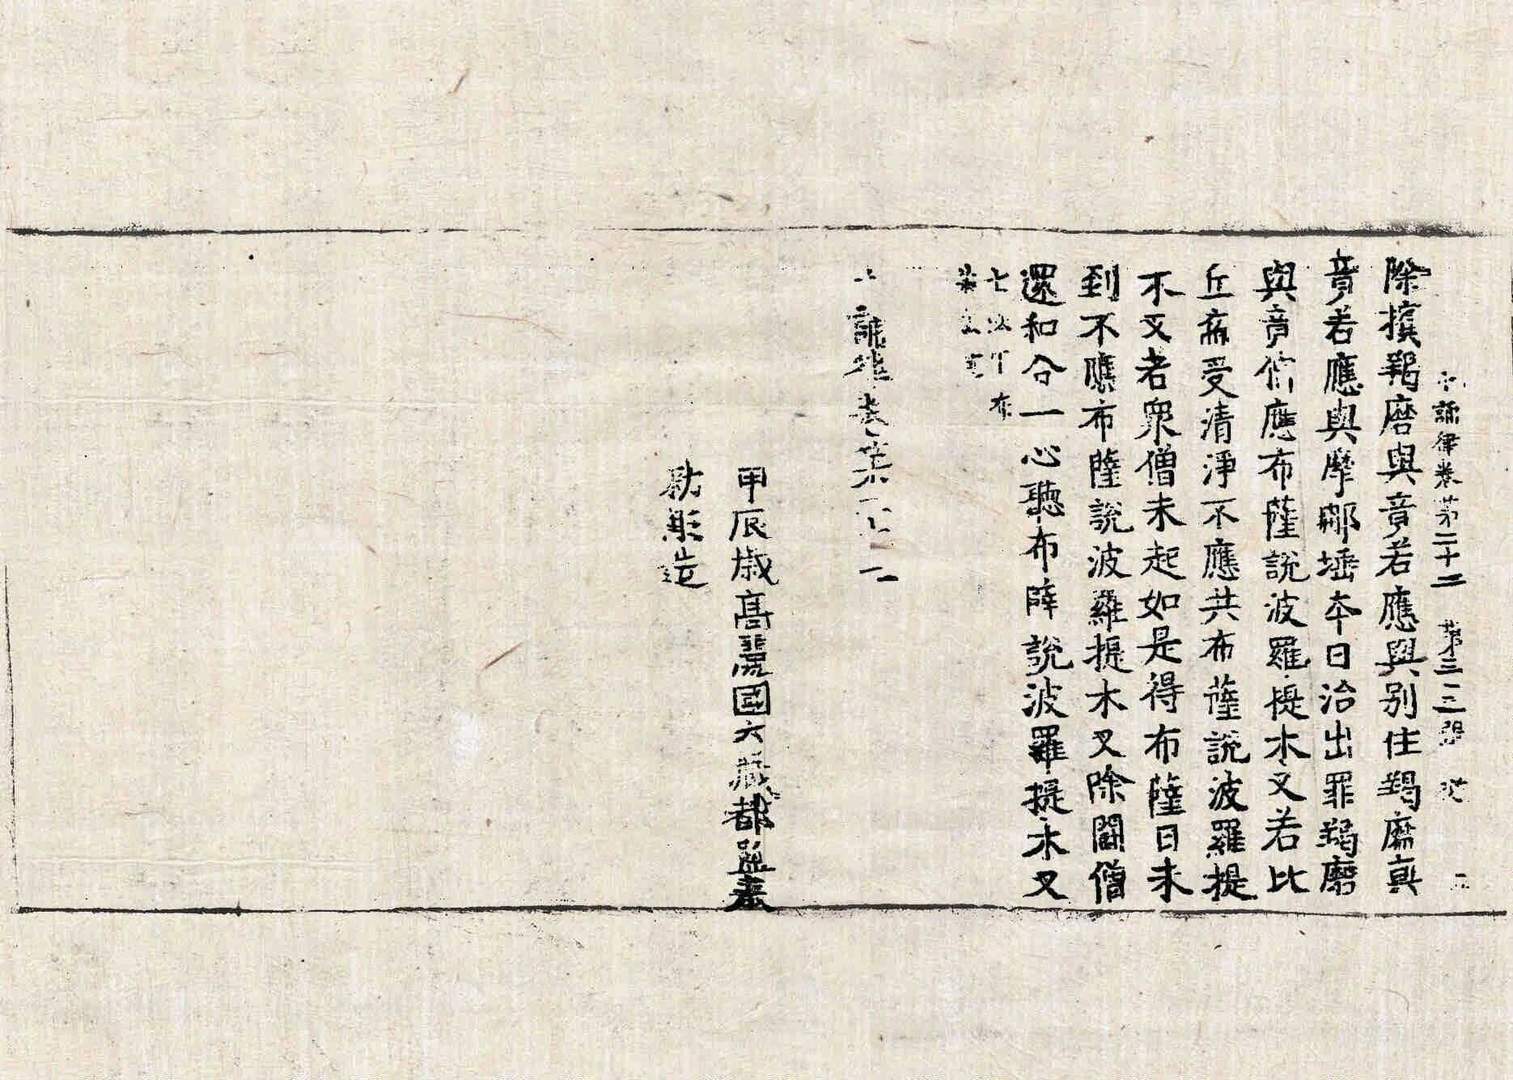 十誦律卷第二十二　第三三張
除擯羯磨與竟若應與別住羯磨與
竟若應與摩那埵本日治出罪羯磨
與竟僧應布薩說波羅提木叉若比
丘病受清淨不應共布薩說波羅提
木叉者眾僧未起如是得布薩日未
到不應布薩說波羅提木叉除鬪僧
還和合一心聽布薩說波羅提木叉
七法中布
十誦律卷第二十二
甲辰歲高麗國大藏都監奉
勅彫造